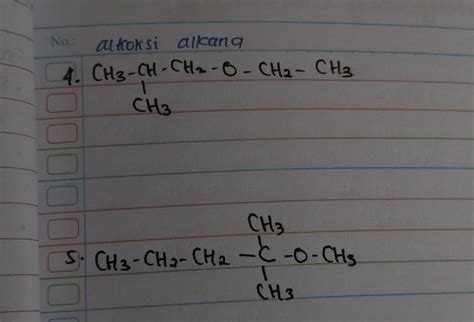 No.: alkoksi alkana
4. CH3-CH-CH2-O-CH2-CH3
CH3
CH3
5. CH3-CH2-CH2-C-O-CH3
CH3